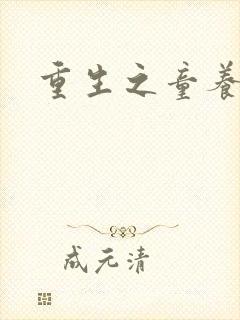 重生之童养
成元清